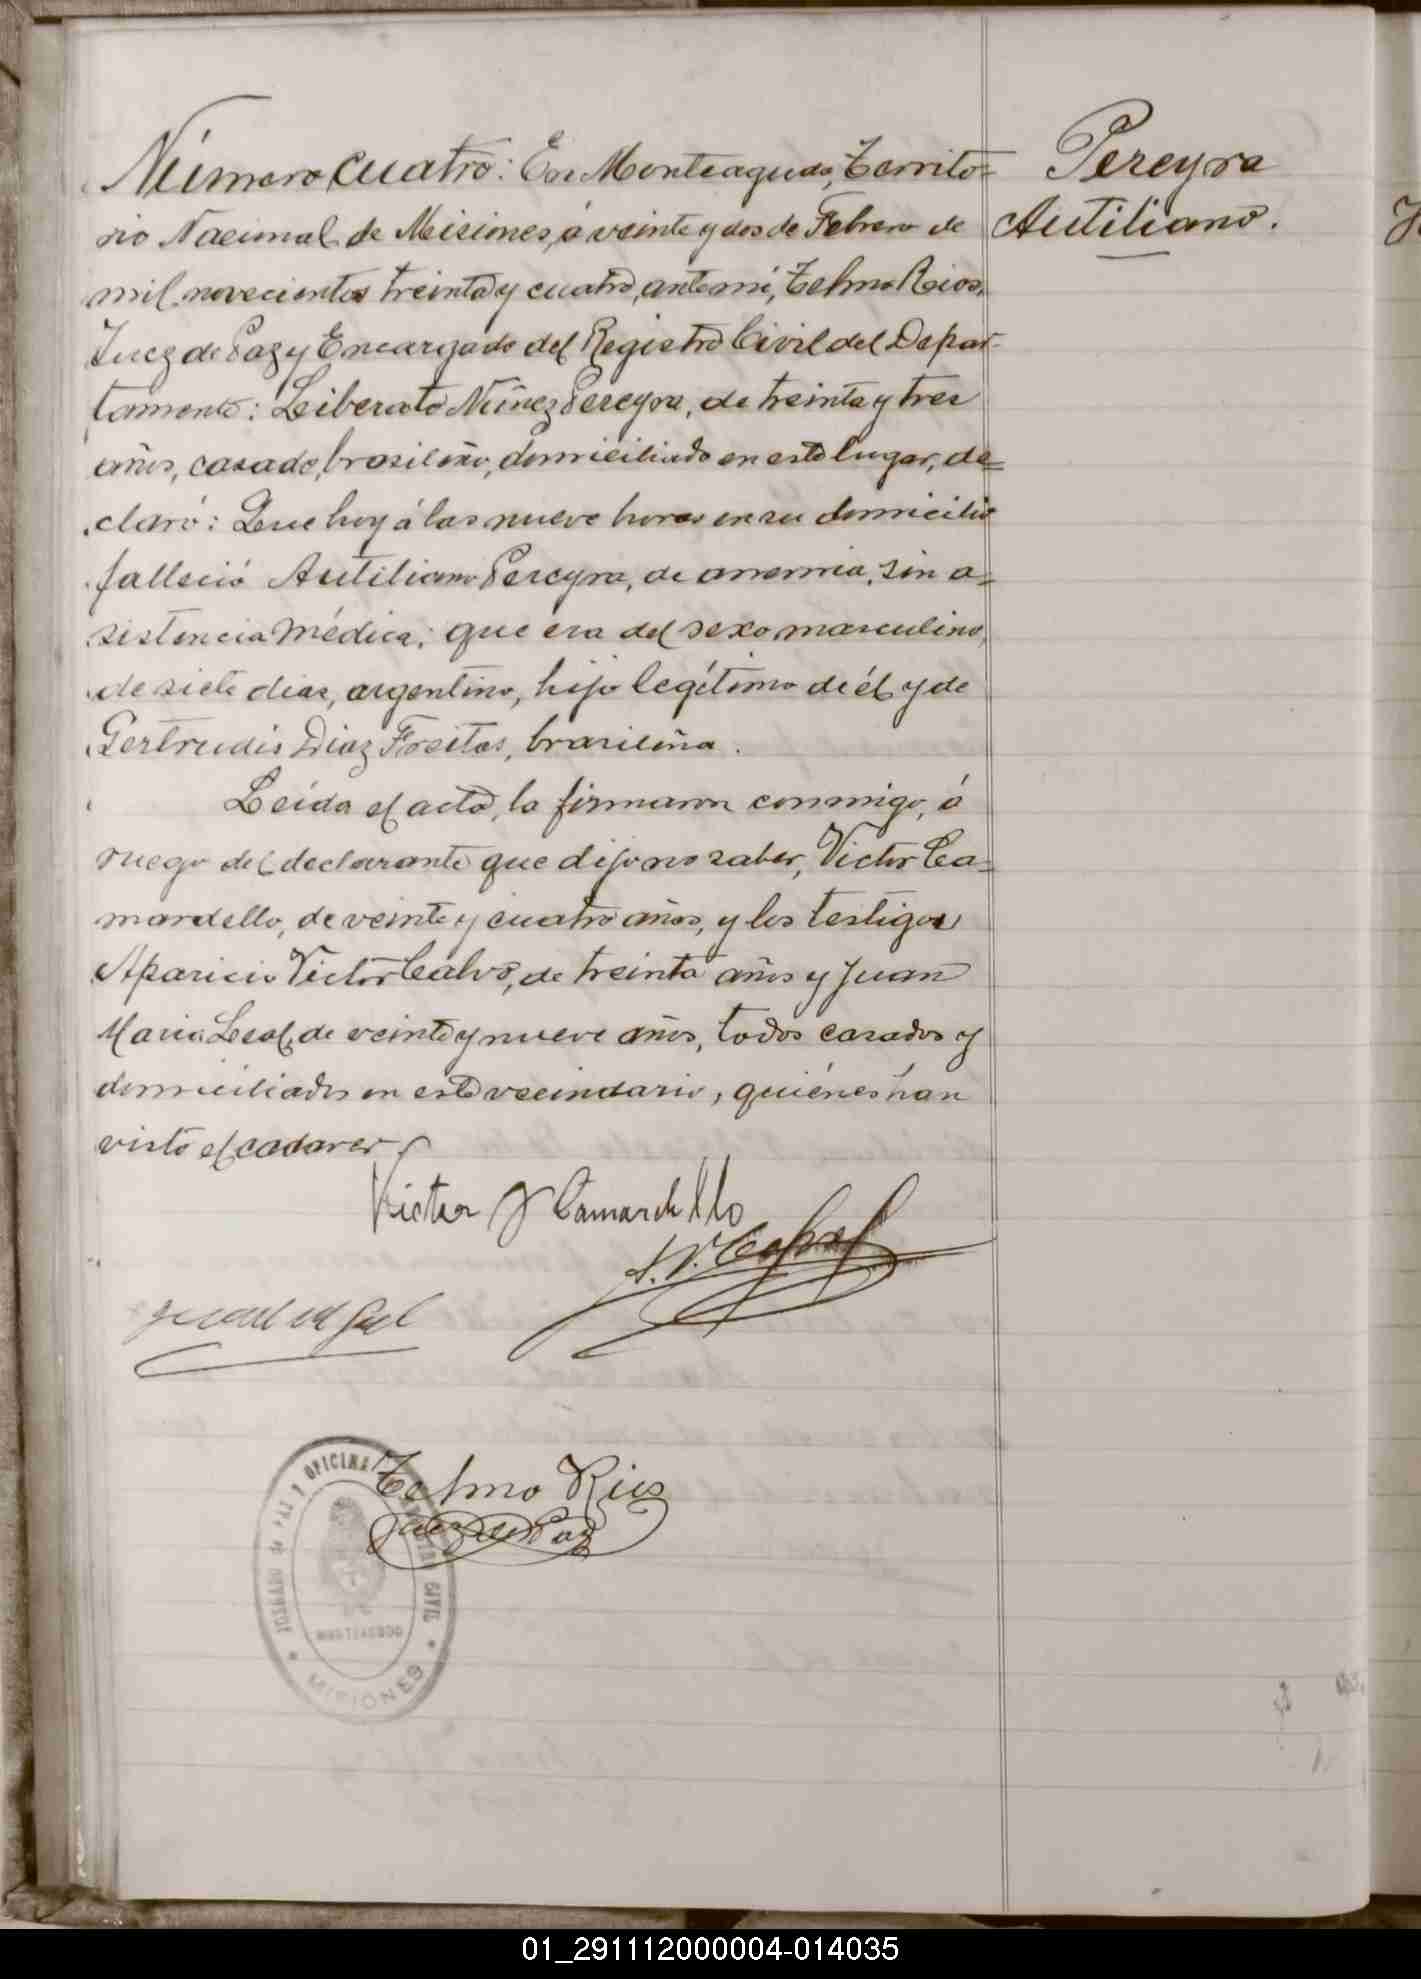 Número cuatro: En Monteagudo, Territo=
rio Nacional de Misiones, á veinte y dos de Febrero de
mil novecientos treinta y cuatro, ante mi, Telmo Rios,
Juez de Paz y Encargado del Registro Civil del Depar-
tamento: Liberato Núnez Pereyra, de treinta y tres
años, casado, brasileño, domiciliado en este lugar, de=
claró: Que hoy á las nueve horas en su domicilio
falleció Autiliano Pereyra, de anemia, sin a=
sistencia médica; que era del sexo masculino,
de siete dias, argentino, hijo legítimo de él y de
Gertrudis Diaz Freitas, brasileña.
Leída el acta, la firmaron conmigo, á
ruego del declarante que dijo no saber, Victor Ca=
mardello, de veinte y cuatro años, y los testigos
Aparicio Victor Calvo, de treinta años y Juan
Maria Leal, de veinte y nueve años, todos casados y
domiciliados en este vecindario, quiénes han
visto el cadaver
Pereyra
Autiliano.
Victor J Camardello
A. V. Calvo
Telmo Rios
Juez de Paz
JUZGADO de PAZ y OFICINA REGISTRO CIVIL
MONTEAGUDO
MISIONES
01_291112000004-014035